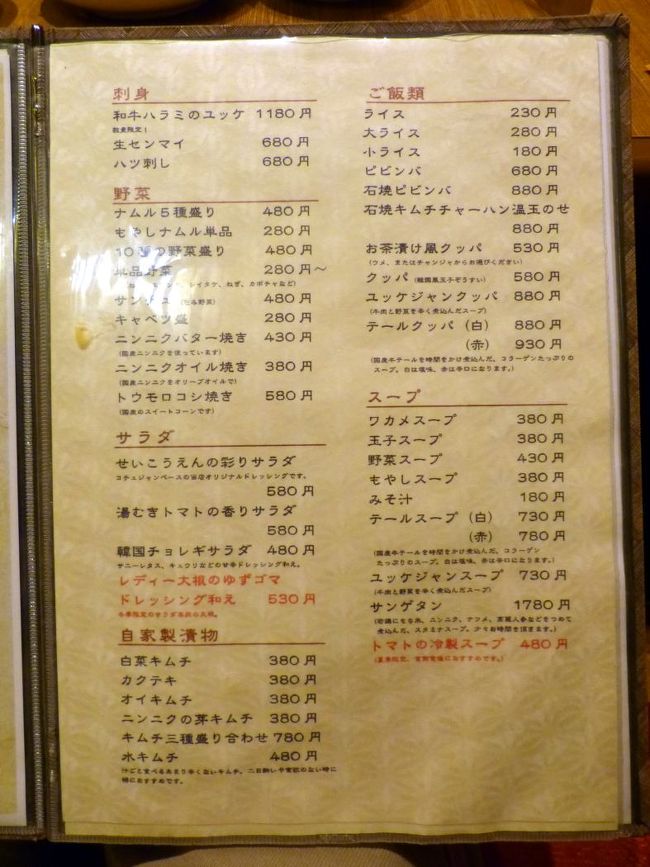 刺身
和牛ハラミのユッケ 1180円
数量限定！
生センマイ 680円
ハツ刺し 680円
野菜
ナムル5種盛り 480円
もやしナムル単品 280円
10種の野菜盛り 480円
単品野菜 280円〜
シイタケ、ねぎ、カボチャなど）
サンチュ（包み野菜） 480円
キャベツ盛 280円
ニンニクバター焼き 430円
（国産ニンニクを使っています）
ニンニクオイル焼き 380円
（国産ニンニクをオリーブオイルで）
トウモロコシ焼き 580円
（国産のスイートコーンです）
サラダ
せいこうえんの彩りサラダ
コチュジャンベースの当店オリジナルドレッシングです。
580円
湯むきトマトの香りサラダ
580円
韓国チョレギサラダ 480円
サニーレタス、キュウリなどのピリ辛ドレッシング和え。
レディー大根のゆずゴマ
ドレッシング和え 530円
自家製漬物
白菜キムチ 380円
カクテキ 380円
オイキムチ 380円
ニンニクの芽キムチ 380円
キムチ三種盛り合わせ 780円
水キムチ 480円
汁ごと食べるあまり辛くないキムチ、二日酔いや食欲のない時に
特におすすめです。
ご飯類
ライス 230円
大ライス 280円
小ライス 180円
ビビンバ 680円
石焼ビビンバ 880円
石焼キムチチャーハン温玉のせ
880円
お茶漬け風クッパ 530円
（ウメ、またはチャンジャからお選びください）
クッパ（韓国風玉子ぞうすい） 580円
ユッケジャンクッパ 880円
（牛肉と野菜を辛く煮込んだスープ）
テールクッパ（白） 880円
（赤） 930円
（国産牛テールを時間をかけ煮込んだ、コラーゲンたっぷりの
スープ。白は塩味、赤は辛口になります。）
スープ
ワカメスープ 380円
玉子スープ 380円
野菜スープ 430円
もやしスープ 380円
みそ汁 180円
テールスープ（白） 730円
（赤） 780円
（国産牛テールを時間をかけ煮込んだ、コラーゲン
たっぷりのスープ。白は塩味、赤は辛口になります。）
ユッケジャンスープ 730円
（牛肉と野菜を辛く煮込んだスープ）
サンゲタン 1780円
（若鶏にもち米、ニンニク、ナツメ、高麗人参などをつめて
煮込んだ、スタミナスープ。少々お時間を頂きます。）
トマトの冷製スープ 480円